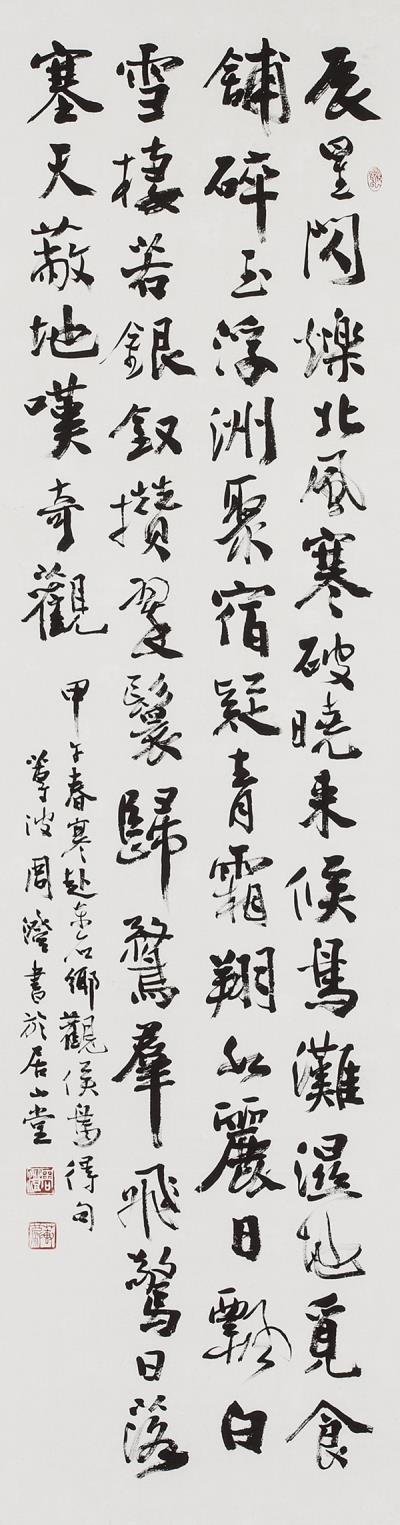 辰星閃爍北風寒破曉來候鳥灘濕地覓食
舖碎玉浮洲聚宿疑青霜翔如麗日飄白
雪棲若銀釵攢翠鬟歸鶩羣飛驚日落
塞天蔽地嘆奇觀
甲午春寒赴東石鄉觀候鳥得句
蓴波周澄書於居山堂